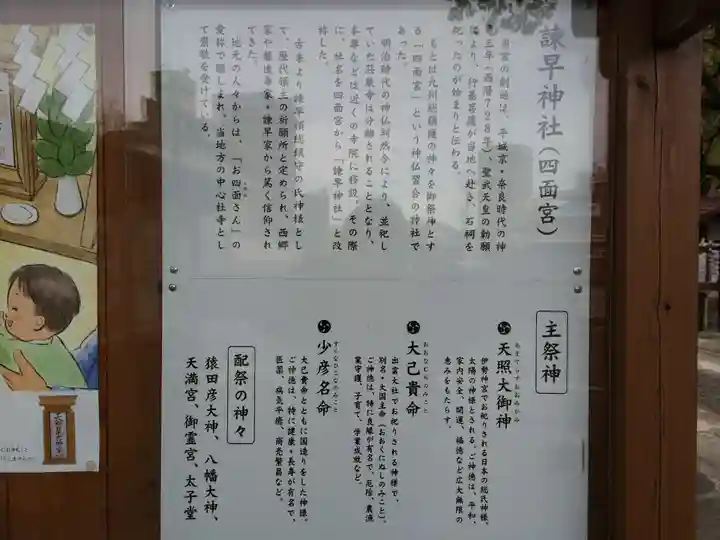 諫早神社(四面宮)
当宮の創祀は、平城京・奈良時代の神
亀三年(西暦728年)、聖武天皇の勅願
により、行基菩薩が当地へ赴き、石祠を
祀ったのが始まりと伝わる。
もとは九州総鎮護の神々を御祭神とす
る「四面宮」という神仏習合の神社で
あった。
明治時代の神仏判然令により、並祀し
ていた荘厳寺は分離されることとなり、
本尊などは近くの寺院に移設。その際
に、社名を四面宮から「諫早神社」と改
称した。
古来より諫早領総鎮守の氏神様とし
て、歴代領主の祈願所と定められ、西郷
家や龍造寺家・諫早家から篤く信仰され
てきた。
地元の人々からは、「お四面さん」の
愛称で親しまれ、当地方の中心社寺とし
て崇敬を受けている。
主祭神
あまてらすおおみかみ
天照大御神
伊勢神宮でお祀りされる日本の総氏神様、
太陽の神様とされる。ご神徳は、平和、
家内安全、開運、福徳など広大無限の
恵みをもたらす。
おおなむちのみこと
大己貴命
出雲大社でお祀りされる神様で、
別名・大国主命(おおくにぬしのみこと)。
ご神徳は、特に良縁が有名で、厄除、農漁
業守護、子育て、学業成就など。
すくなひこなのみこと
少彦名命
大己貴命とともに国造りをした神様。
ご神徳は、特に健康・長寿が有名で、
医薬、病気平癒、商売繁昌など。
配祭の神々
猿田彦大神、八幡大神、
天満宮、御霊宮、太子堂